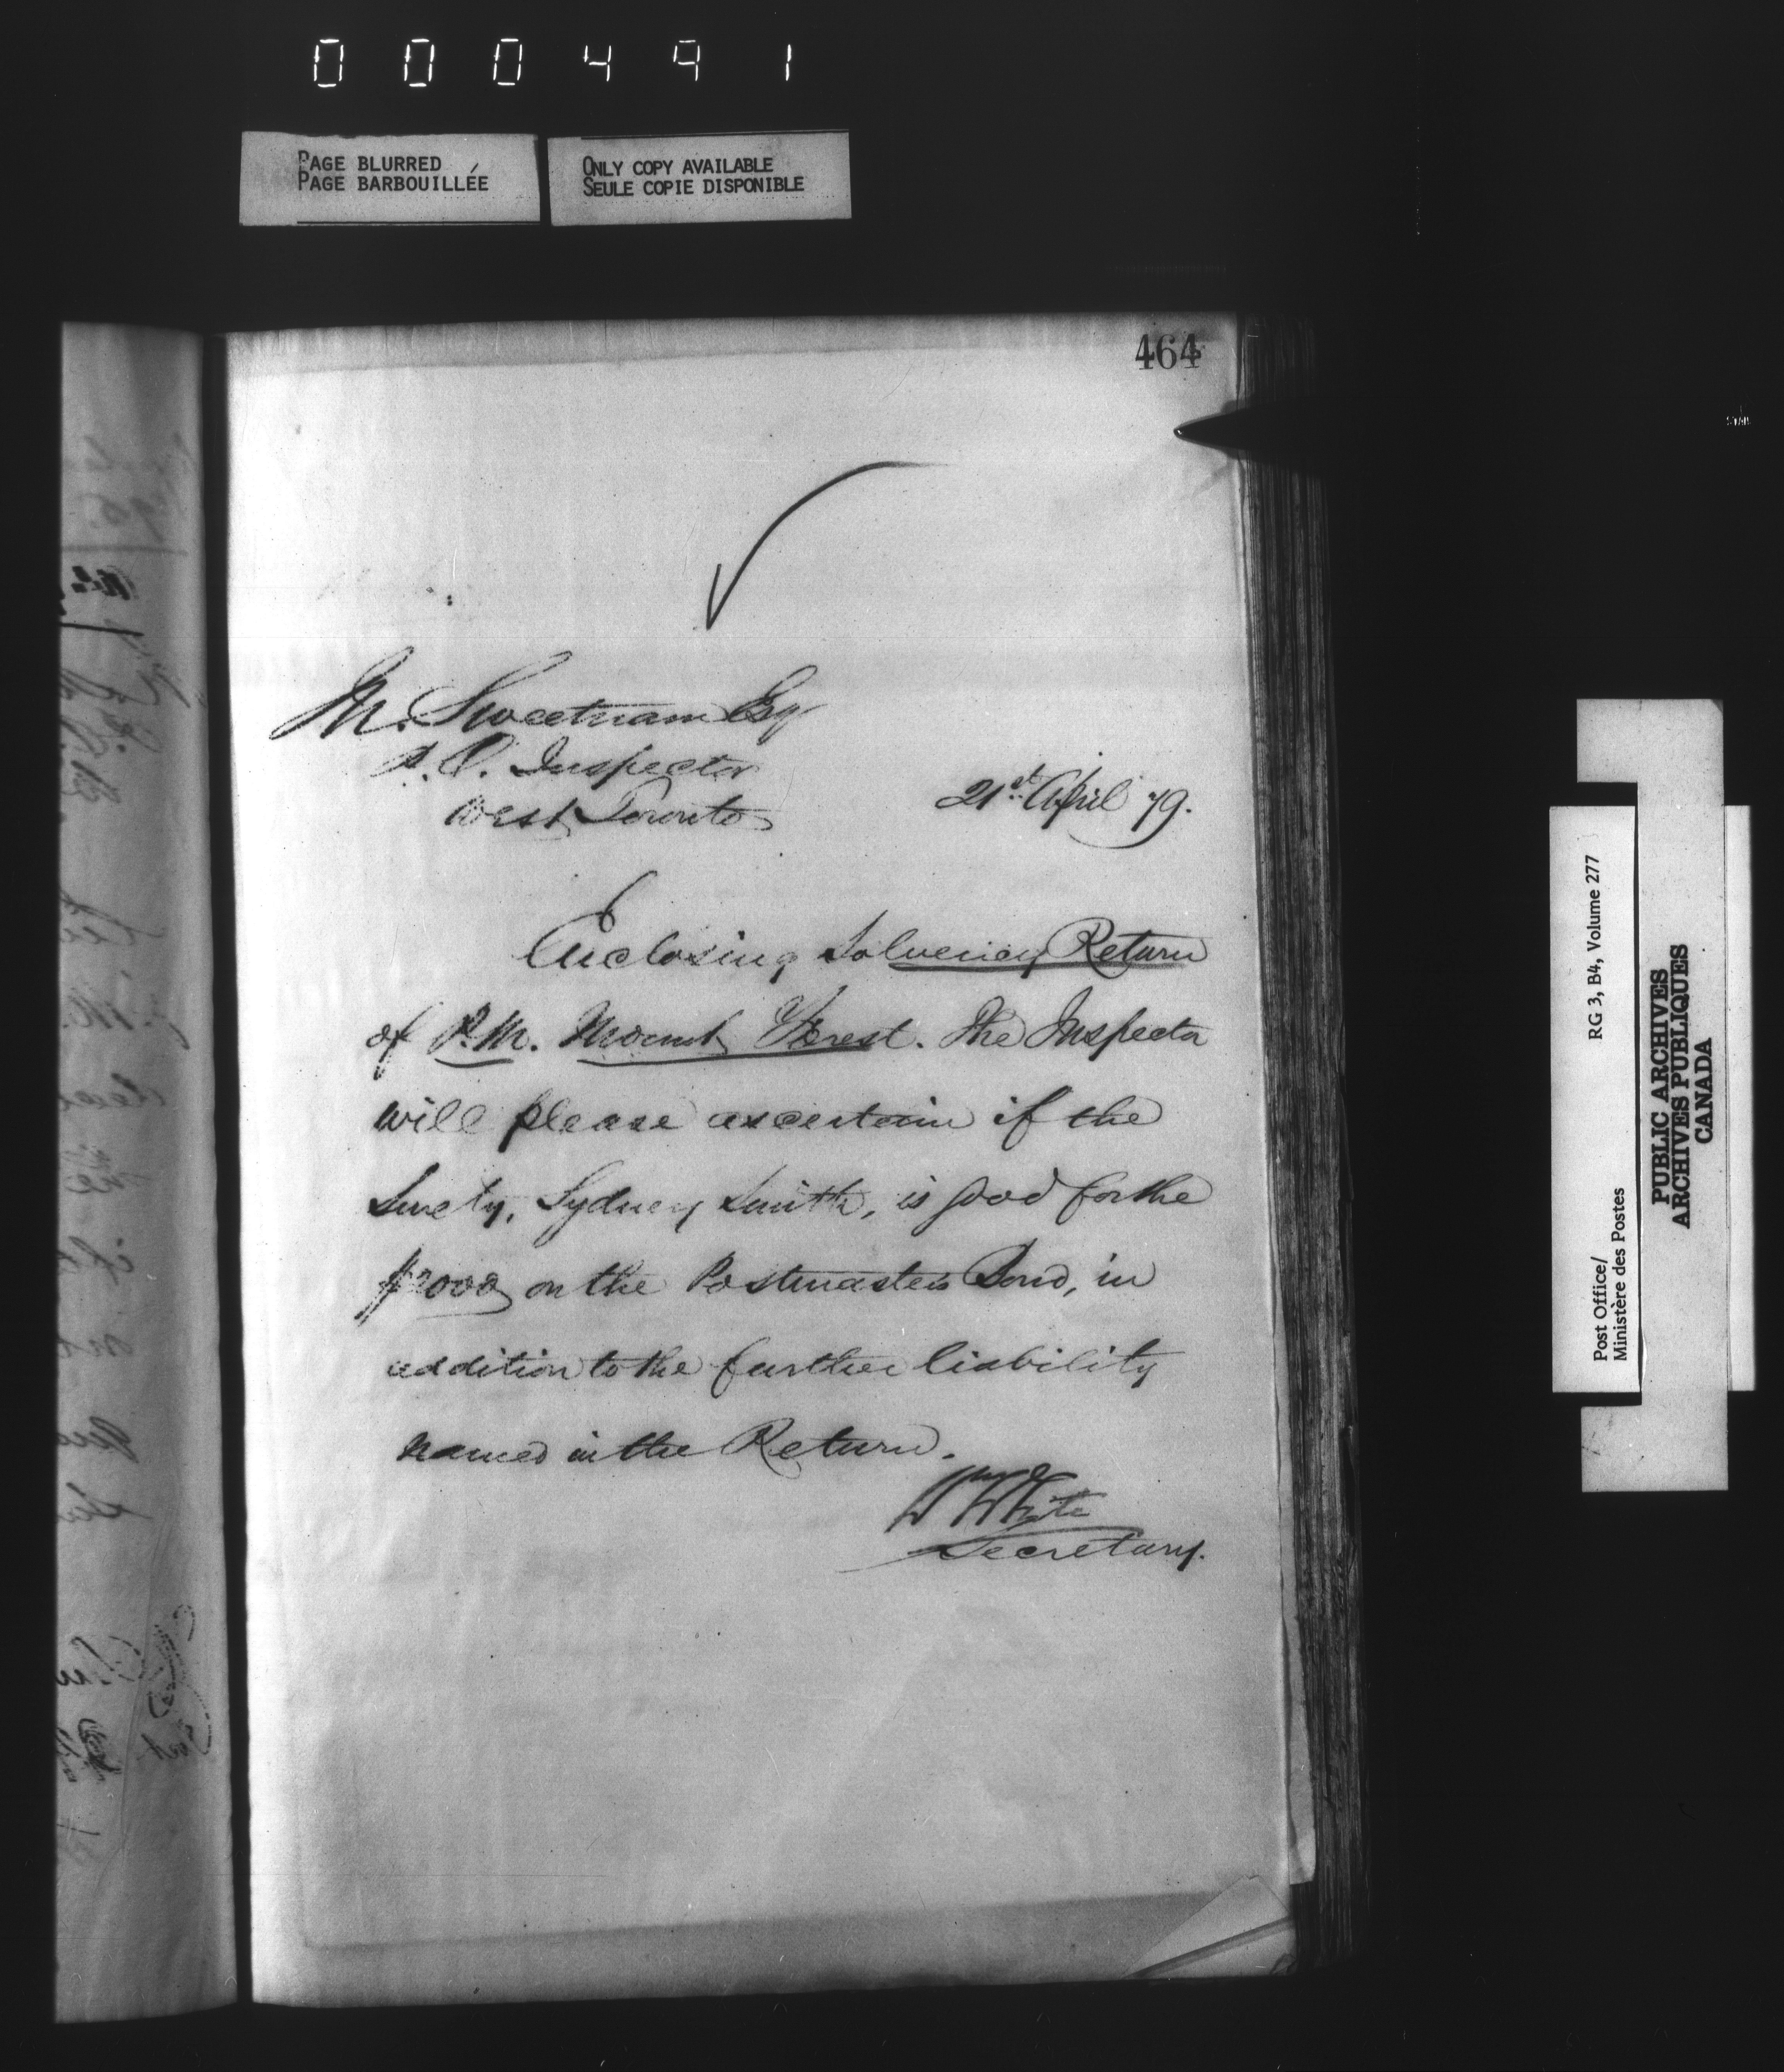 000491
PAGE BLURRED
PAGE BARBOUILLÉE
ONLY COPY AVAILABLE
SEULE COPIE DISPONIBLE
464
M. Sweetnam Esq
P.O. Inspector
West Toronto
21st April 79.
Enclosing Solvency Return
of P.M. Mount Forest. The Inspector
will please ascertain if the
Surety, Sydney Smith, is good for the
$2000 on the Postmasters Bond, in
addition to the further liability
named in the Return.
Wm White
Secretary.
Post Office/
Ministère des Postes
RG 3, B4, Volume 277
PUBLIC ARCHIVES
ARCHIVES PUBLIQUES
CANADA